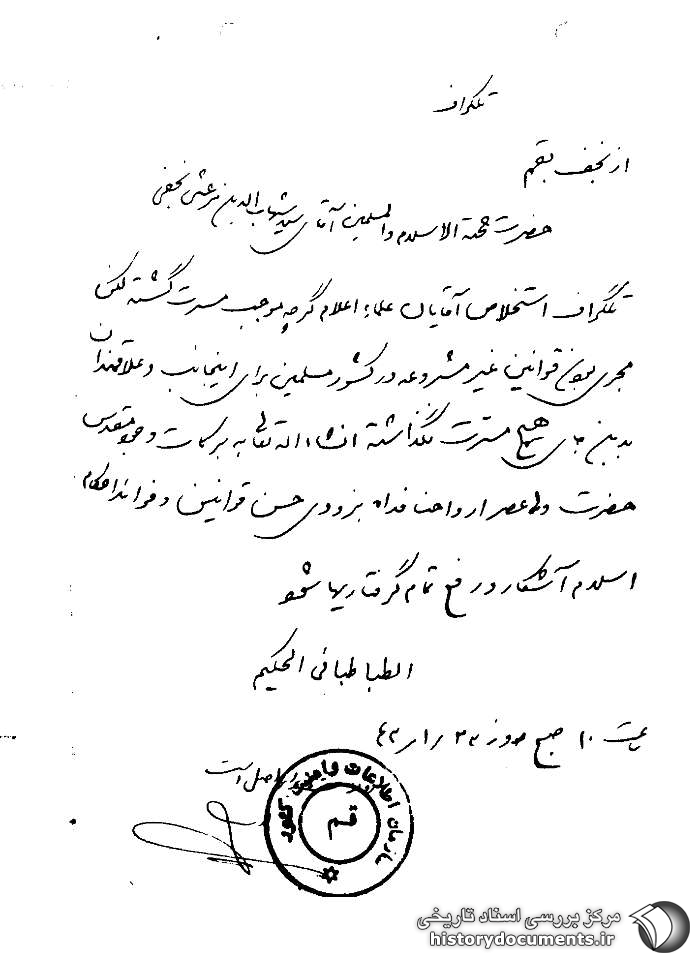 تلگراف
از نجف بقم
حضرت حجة الاسلام والمسلمین آقای سید شهاب الدین مرعشی نجفی
تلگراف استخلاص آقایان علماء اعلام گرچه موجب مسرت گشته لکن
مجری بودن قوانین غیر مشروعه در کشور مسلمین برای اینجانب و علاقمندان
بدین جای هیچ مسرت نگذاشته انشاءاله تعالی به برکات وجود مقدس
حضرت ولیعصر ارواحنا فداه بزودی حسن قوانین و فوائد احکام
اسلام آشکار و رفع تمام گرفتاریها شود
الطباطبائی الحکیم
ساعت ۱۰ صبح روز ۲۳/۱/۴۳
اصلی است
سازمان اطلاعات و امنیت کشور
قم
مرکز بررسی اسناد تاریخی
historydocuments.ir